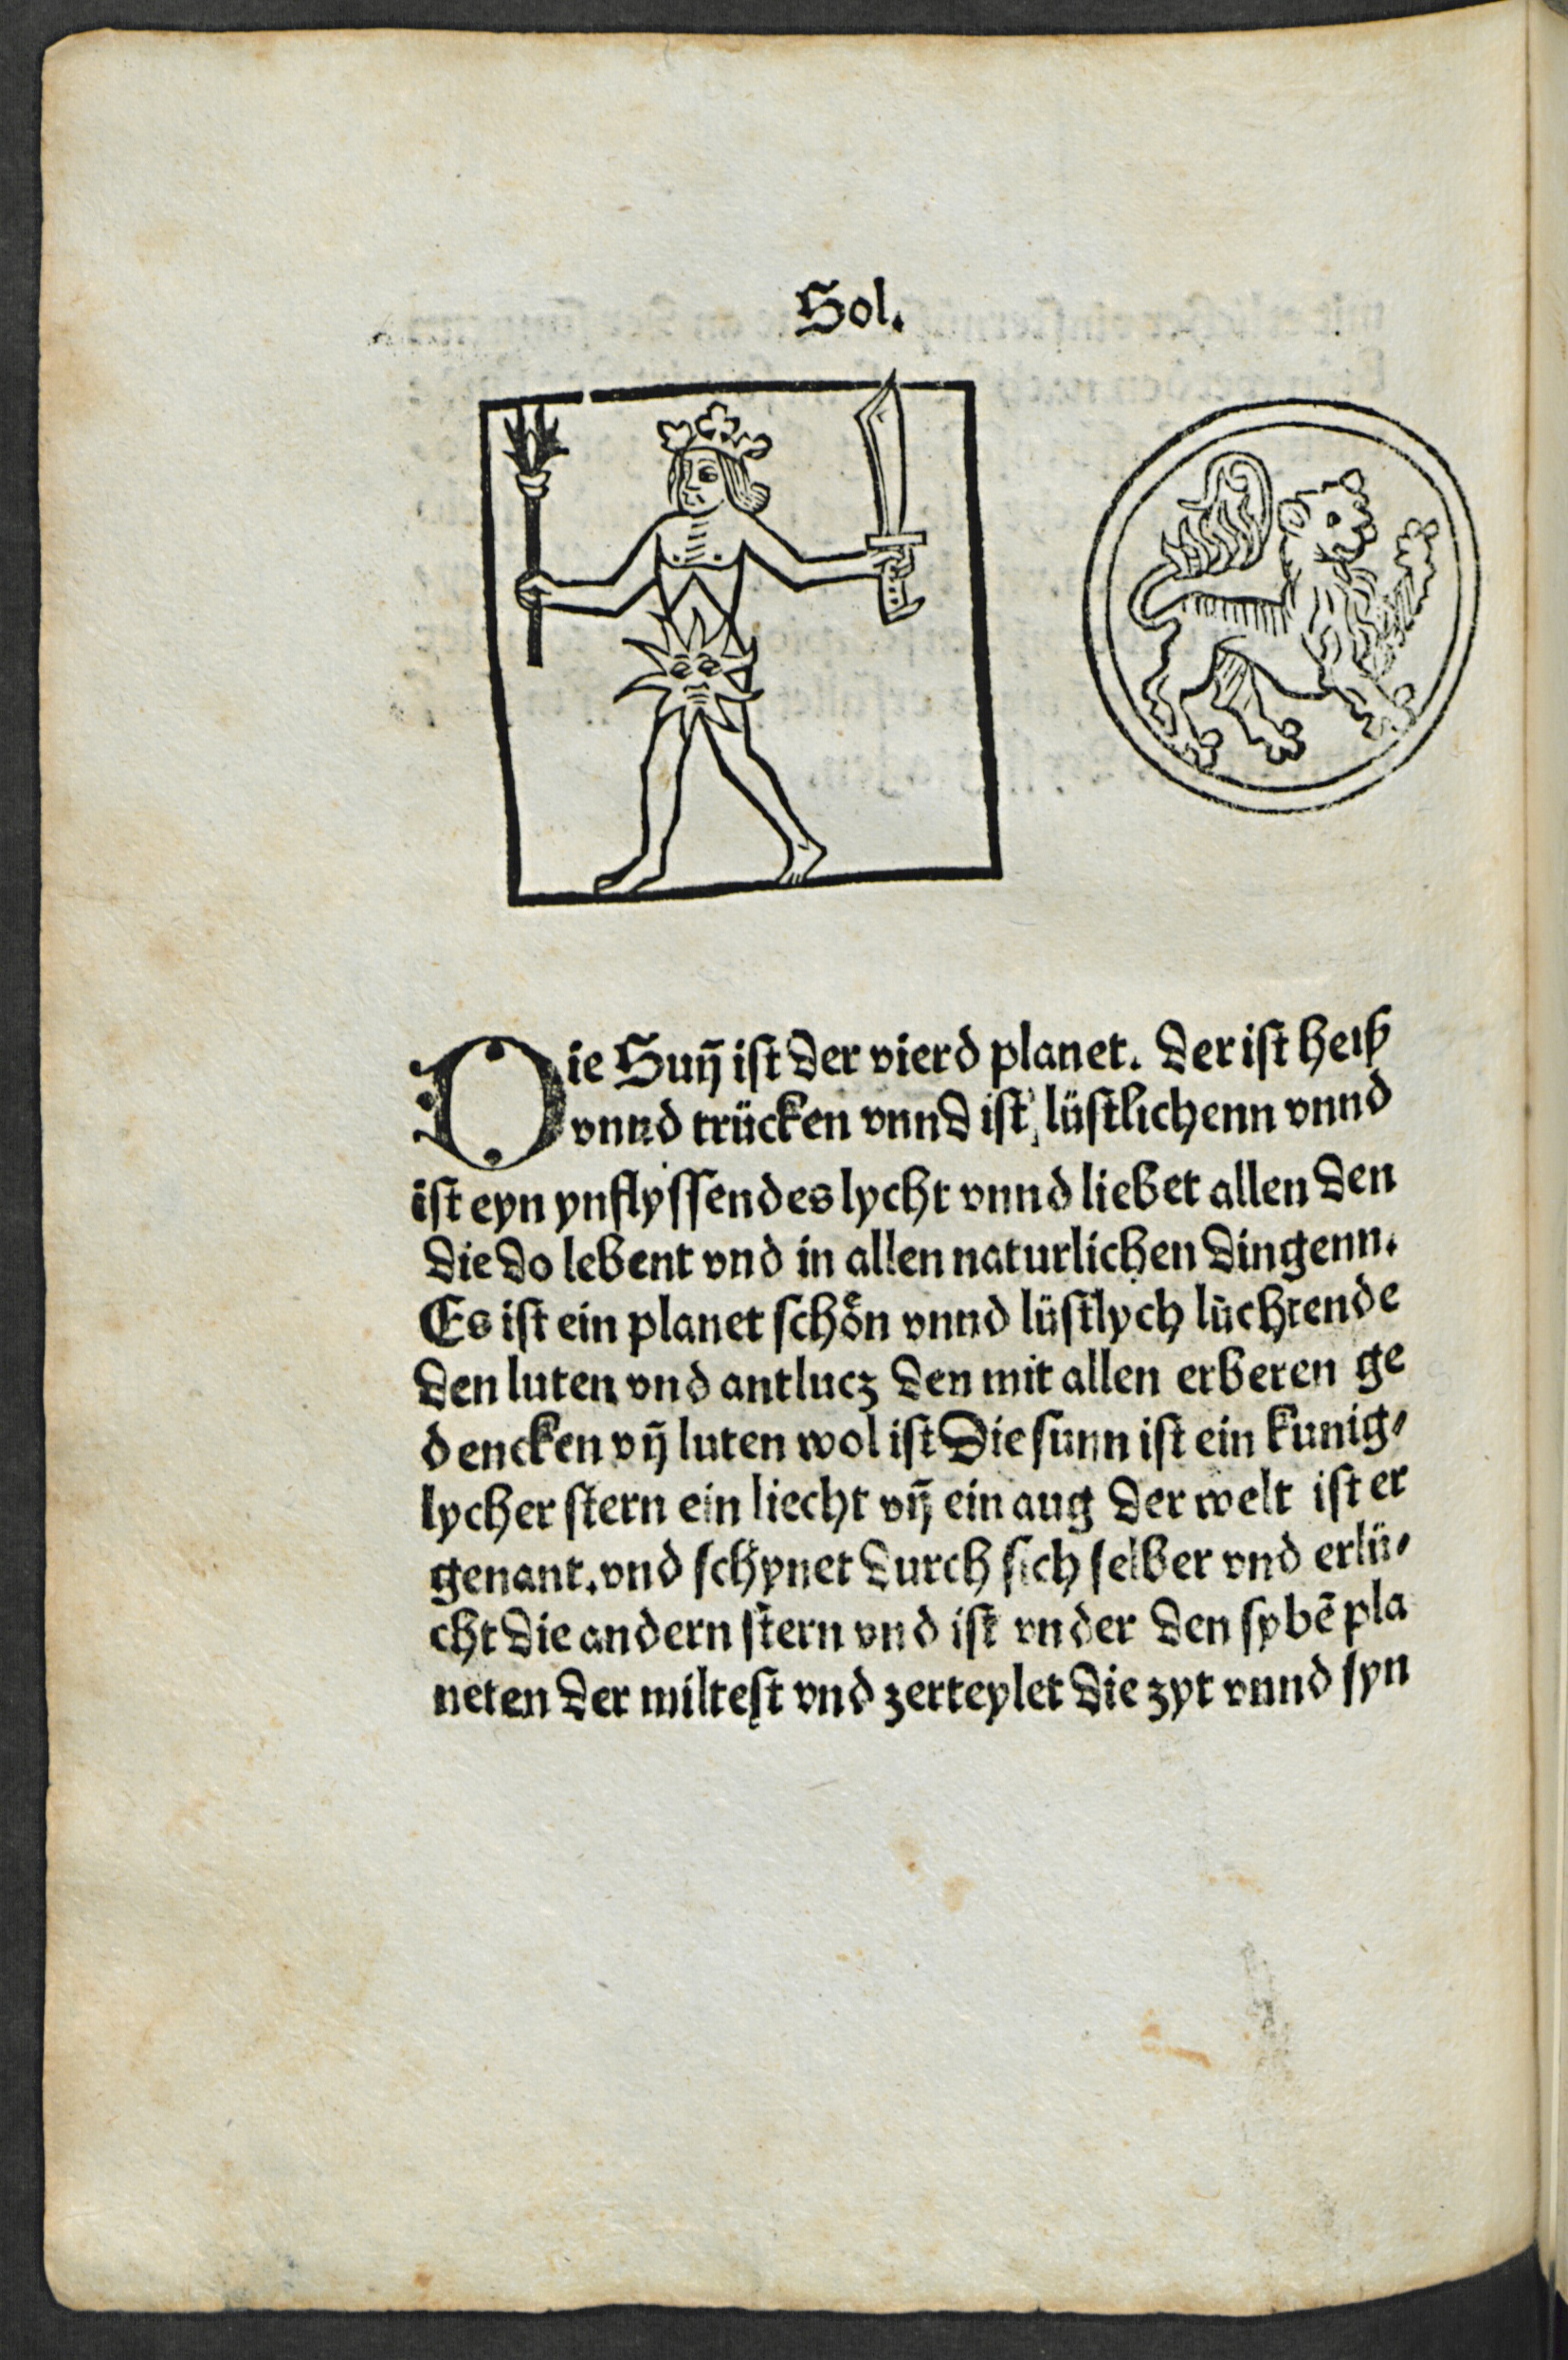 Sol.
Die Sun̄ iſt der vierd planet. der iſt heiß
vnnd trücken vnnd iſt lüſtlichenn vnnd
iſt eyn ynflyſſendes lycht vnnd liebet allen den
die do lebent vnd in allen naturlichen dingenn.
Es iſt ein planet ſchoͤn vnnd lüſtlych lüchtende
den luten vnd antlucz den mit allen erberen ge
dencken vn̄ luten wol iſt Die ſunn iſt ein kunig⸗
lycher ſtern ein liecht vn̄ ein aug der welt iſt er
genant. vnd ſchynet durch ſich ſelber vnd erlü⸗
cht die andern ſtern vnd iſt vnder den ſybē pla
neten der milteſt vnd zerteylet die zyt vnnd ſyn